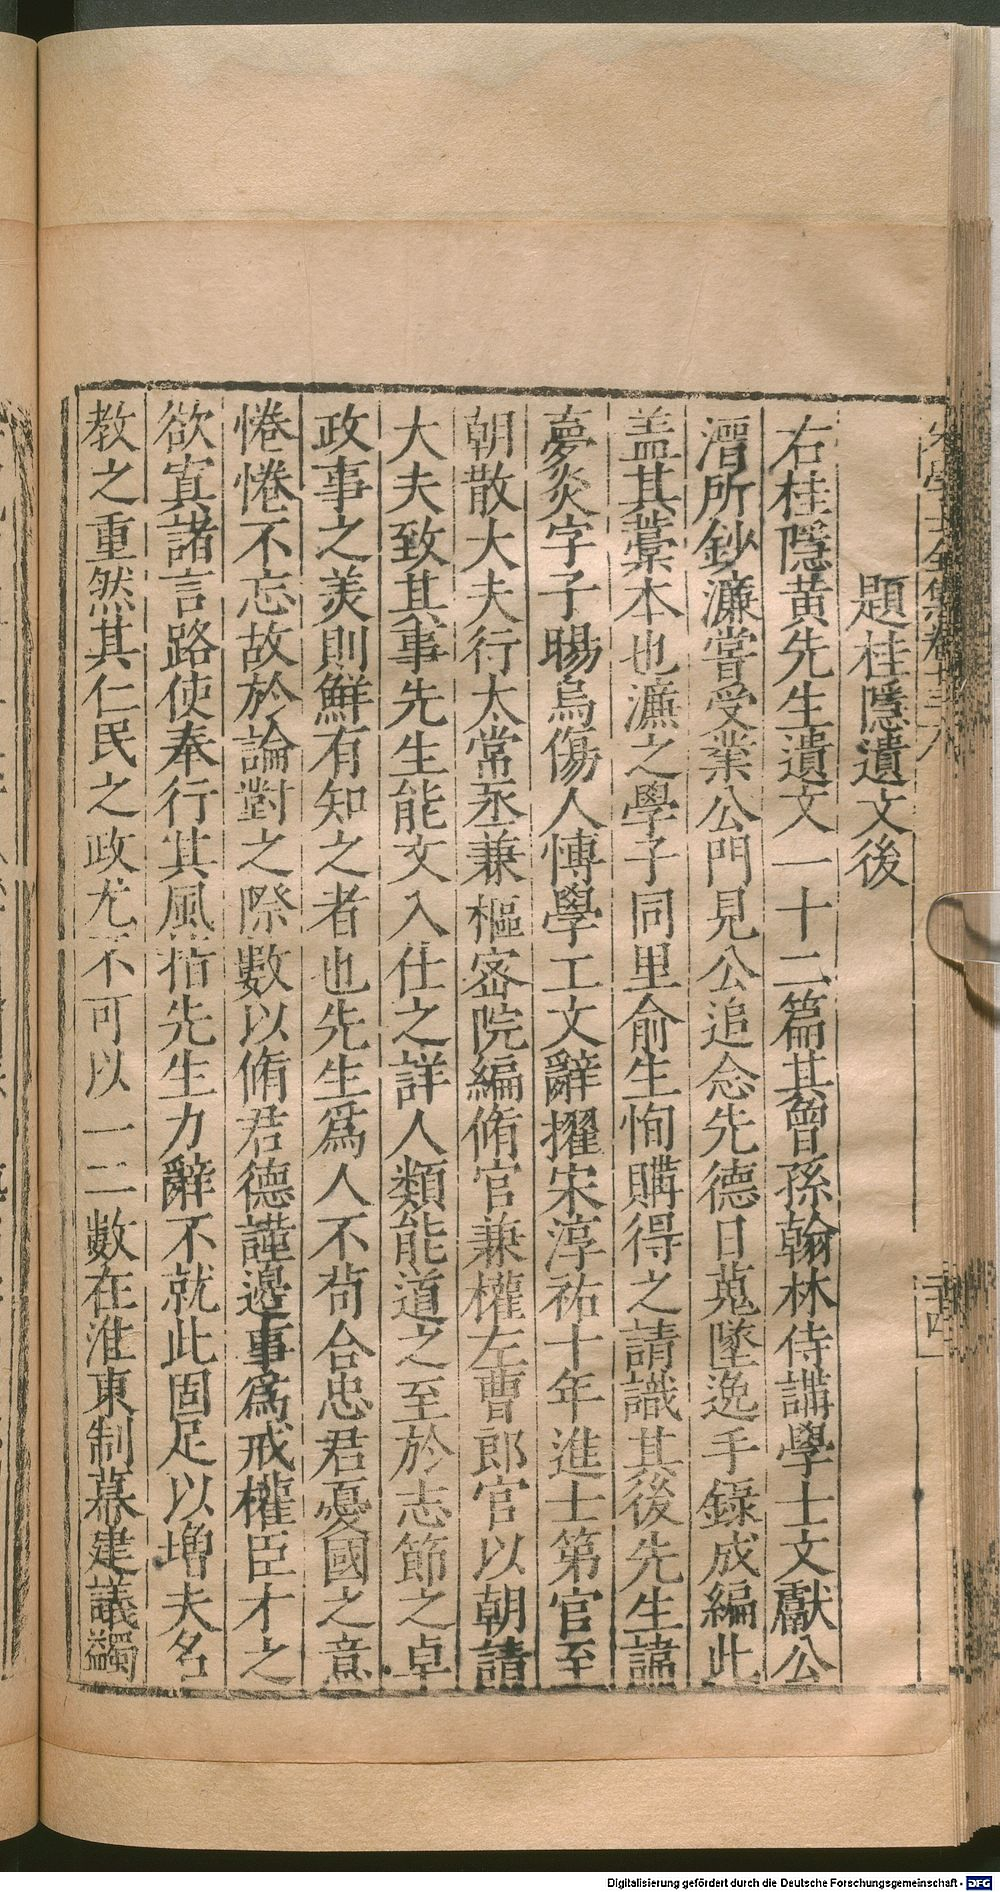 題桂隱遺文後
右桂隱黃先生遺文一十二篇其曾孫翰林侍講學士文獻公
溍所鈔濂嘗受業公門見公追念先德日蒐墜逸手錄成編此
盖其藁本也濂之學子同里俞生恂購得之請識其後先生諱
夢炎字子暘烏傷人博學工文辭擢宋淳祐十年進士第官至
朝散大夫行太常丞兼樞密院編脩官兼權左曹郎官以朝請
大夫致其事先生能文入仕之詳人類能道之至於志節之卓
政事之羙則鮮有知之者也先生爲人不茍合忠君憂國之意
惓惓不忘故於論對之際數以脩君德謹邊事爲戒權臣才之
欲寘諸言路使奉行其風指先生力辭不就此固足以增夫名
教之重然其仁民之政尤不可以一二數在淮東制幕建議蠲
Digitalisierung gefördert durch die Deutsche Forschungsgemeinschaft - DFG